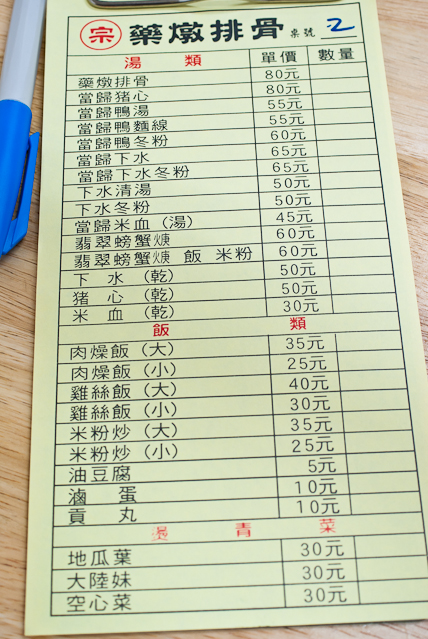 宗 藥燉排骨 桌號 2
湯類 單價 數量
藥燉排骨 80元
當歸猪心 80元
當歸鴨湯 55元
當歸鴨麵線 55元
當歸鴨冬粉 60元
當歸下水 65元
當歸下水冬粉 65元
下水清湯 50元
下水冬粉 50元
當歸米血（湯） 45元
翡翠螃蟹焿 60元
翡翠螃蟹焿 飯 米粉 60元
下水（乾） 50元
猪心（乾） 50元
米血（乾） 30元
飯類
肉燥飯（大） 35元
肉燥飯（小） 25元
雞絲飯（大） 40元
雞絲飯（小） 30元
米粉炒（大） 35元
米粉炒（小） 25元
油豆腐 5元
滷蛋 10元
貢丸 10元
燙青菜
地瓜葉 30元
大陸妹 30元
空心菜 30元